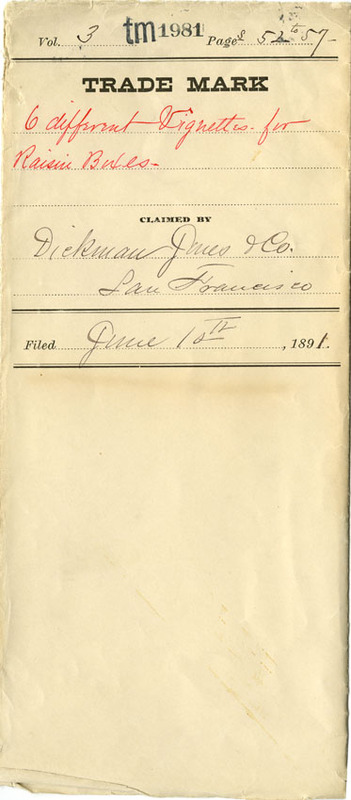 Vol. 3 tm 1981 Pages 52 to 57
TRADE MARK
6 different Vignettes for
Raisin Boxes
CLAIMED BY
Dickman Jones & Co.
San Francisco
Filed June 10th, 1891.